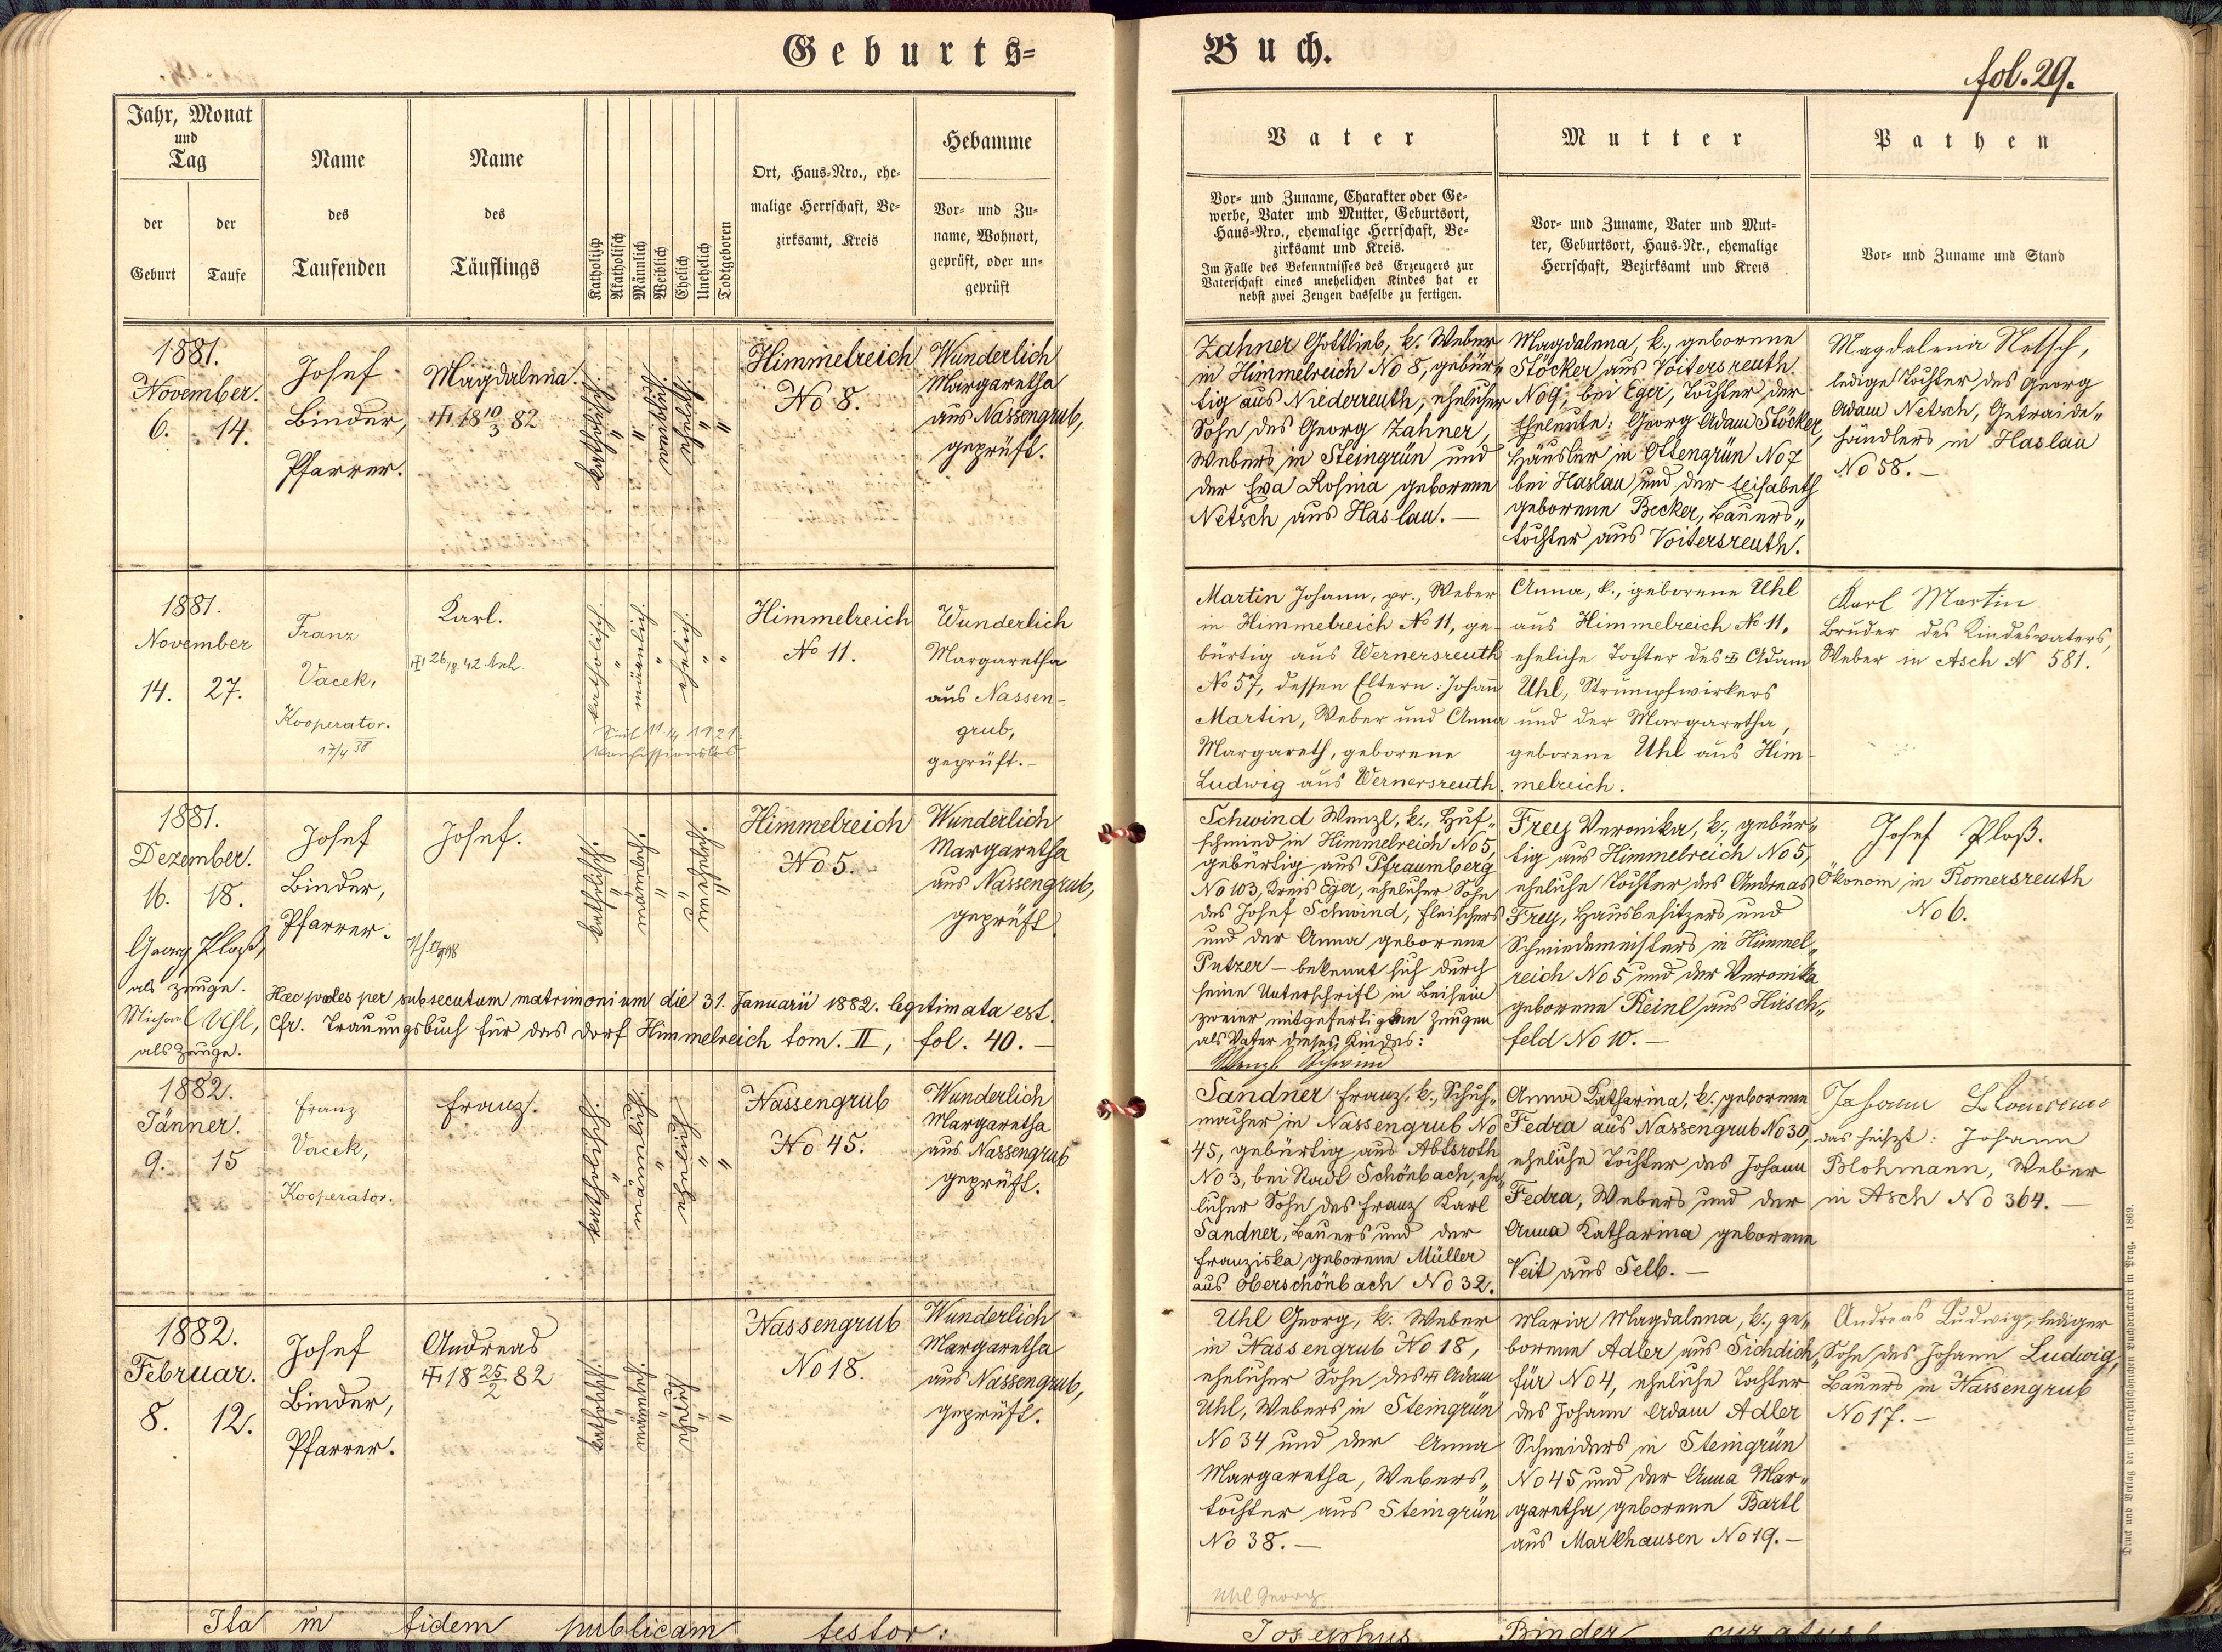 Geburts=
Buch.
fol. 29.
Jahr, Monat
und
Tag
der
Geburt
der
Taufe
Name
des
Taufenden
Name
des
Täuflings
Katholisch
Akatholisch
Männlich
Weiblich
Ehelich
Unehelich
Todtgeboren
Ort, Haus=Nro., ehe=
malige Herrschaft, Be=
zirksamt, Kreis
Hebamme
Vor= und Zu=
name, Wohnort,
geprüft, oder un=
geprüft
Vater
Vor= und Zuname, Charakter oder Ge=
werbe, Vater und Mutter, Geburtsort,
Haus=Nro., ehemalige Herrschaft, Be=
zirksamt und Kreis.
Im Falle des Bekenntnisses des Erzeugers zur
Vaterschaft eines unehelichen Kindes hat er
nebst zwei Zeugen dasselbe zu fertigen.
Mutter
Vor= und Zuname, Vater und Mut=
ter, Geburtsort, Haus=Nr., ehemalige
Herrschaft, Bezirksamt und Kreis
Pathen
Vor= und Zuname und Stand
1881.
November.
6. 14.
Josef
Binder,
Pfarrer.
Magdalena.
18 10/3 82
katholisch
"
"
weiblich
ehelich
"
"
Himmelreich
No 8.
Wunderlich
Margaretha
aus Nassengrub,
geprüft.
Zahner Gottlieb, k. Weber
in Himmelreich No 8, gebür"
tig aus Niederreuth, ehelicher
Sohn des Georg Zahner,
Webers in Steingrün und
der Eva Rosina geborene
Netsch aus Haslau. —
Magdalena, k., geborene
Stöcker aus Voitersreuth
No 9, bei Eger, Tochter der
Eheleute: Georg Adam Stöcker,
Häusler in Ottengrün No 7
bei Haslau und der Elisabeth
geborene Becker, Bauers"
tochter aus Voitersreuth.
Magdalena Netsch,
ledige Tochter des Georg
Adam Netsch, Getraide"
händlers in Haslau
No 58. —
1881.
November
14. 27.
Franz
Vacek,
Kooperator.
17/4 38
Karl.
26/8. 42
katholisch
"
männlich
"
ehelich.
"
"
Seit 11/4 1921
konfessionslos
Himmelreich
No 11.
Wunderlich
Margaretha
aus Nassen-
grub,
geprüft. -
Martin Johann, pr., Weber
in Himmelreich No 11, ge-
bürtig aus Wernersreuth
No 57, dessen Eltern: Johann
Martin, Weber und Anna
Margareth, geborene
Ludwig aus Wernersreuth.
Anna, k., geborene Uhl
aus Himmelreich No 11,
eheliche Tochter des Adam
Uhl, Strumpfwirkers
und der Margaretha,
geborene Uhl aus Him-
melreich.
Karl Martin
Bruder des Kindesvaters,
Weber in Asch N 581.
1881.
Dezember.
16. 18.
Georg Ploß,
als Zeuge.
Michael Uhl,
als Zeuge.
Josef
Binder,
Pfarrer.
Josef.
katholisch.
"
männlich.
"
"
unehelich.
"
Himmelreich
No 5.
Wunderlich
Margaretha
aus Nassengrub,
geprüft.
Haec proles per subsecutum matrimonium die 31. Januarii 1882. legitimata est.
Cfr. Trauungsbuch für das Dorf Himmelreich tom. II, fol. 40. —
Schwind Wenzl, k., Huf"
schmied in Himmelreich No 5,
gebürtig aus Pfraumberg
No 103, Kreis Eger, ehelicher Sohn
des Josef Schwind, Fleischers
und der Anna geborene
Putzer — bekennt sich durch
seine Unterschrift in Beisein
zweier mitgefertigten Zeugen
als Vater dieses Kindes:
Wenzl Schwind
Frey Veronika, k., gebür"
tig aus Himmelreich No 5,
eheliche Tochter des Andreas
Frey, Hausbesitzers und
Schmiedemeisters in Himmel"
reich No 5 und der Veronika
geborene Reinl aus Hirsch"
feld No 10. —
Josef Ploß.
Ökonom in Romersreuth
No 6.
1882.
Jänner.
9. 15
Franz
Vacek,
Kooperator.
Franz.
katholisch.
"
männlich.
"
ehelich
"
"
Nassengrub
No 45.
Wunderlich
Margaretha
aus Nassengrub
geprüft.
Sandner Franz, k., Schuh"
macher in Nassengrub No
45, gebürtig aus Abtsroth
No 3, bei Stadt Schönbach, ehe"
licher Sohn des Franz Karl
Sandner, Bauers und der
Franziska, geborene Müller
aus Oberschönbach No 32.
Anna Katharina, k. geborene
Fedra aus Nassengrub No 30,
eheliche Tochter des Johann
Fedra, Webers und der
Anna Katharina geborene
Veit aus Selb. —
Johann
das heißt: Johann
Blohmann, Weber
in Asch No 364. —
1882.
Februar.
8. 12.
Josef
Binder,
Pfarrer.
Andreas
18 25/2 82
katholisch.
"
männlich.
"
ehelich
"
"
Nassengrub
No 18.
Wunderlich
Margaretha
aus Nassengrub,
geprüft.
Uhl Georg, k. Weber
in Nassengrub No 18,
ehelicher Sohn des Adam
Uhl, Webers in Steingrün
No 34 und der Anna
Margaretha, Webers"
tochter aus Steingrün
No 38. —
Uhl Georg
Maria Magdalena, k., ge"
borene Adler aus Sichdich"
für No 4, eheliche Tochter
des Johann Adam Adler
Schneiders in Steingrün
No 45 und der Anna Mar"
garetha geborene Bartl
aus Markhausen No 19. —
Andreas Ludwig, lediger
Sohn des Johann Ludwig,
Bauers in Nassengrub
No 17. —
Ita in fidem publicam testor:
Josephus Binder curatus
Druck und Verlag der fürst=erzbischöflichen Buchdruckerei in Prag. 1869.